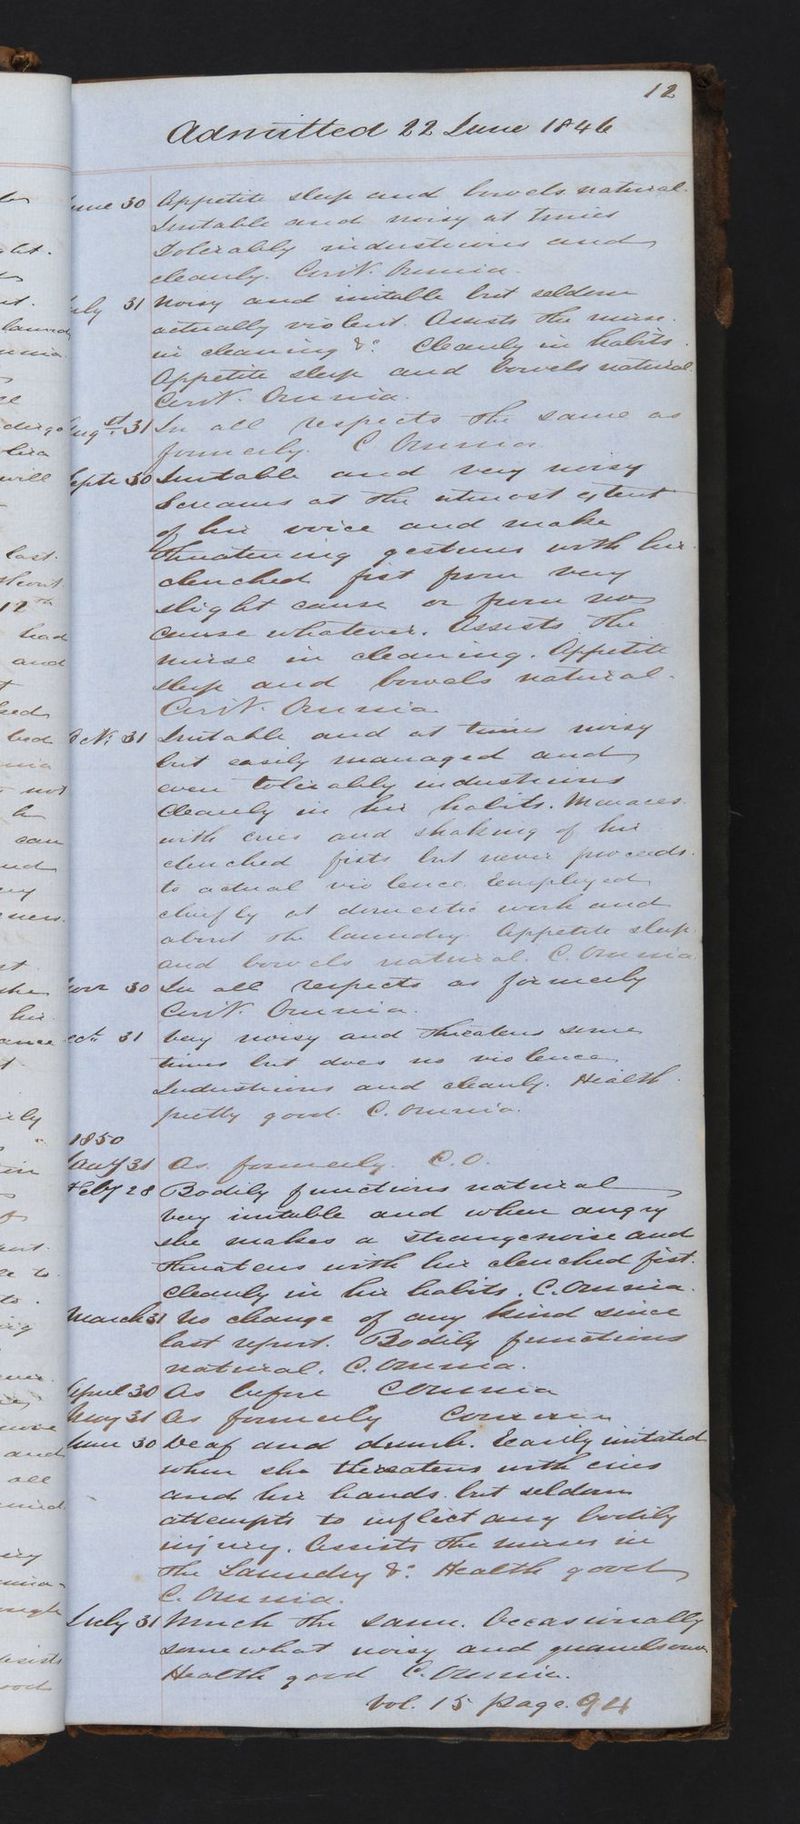 12
Admitted 22 June 1846
June 30 Appetite sleep and bowels natural.
Irritable and noisy at times
Tolerably industrious and
cleanly. Cont. Omnia.
July 31 Noisy and irritable but seldom
actually violent. Assists the nurse.
in cleaning &c. Cleanly in habits.
Appetite sleep and bowels natural.
Cont. Omnia.
Augst 31 In all respects the same as
formerly. C. Omnia.
Septr 30 Irritable and very noisy
Screams at the utmost extent
of her voice and make
threatening gestures with her
clenched fist from very
slight cause or from no
cause whatever. Assists the
nurse in cleaning. Appetite
sleep and bowels natural.
Cont. Omnia
Octr 31 Irritable and at times noisy
but easily managed and
even tolerably industrious
Cleanly in her habits. Menaces
with cries and shaking of her
clenched fists but never proceeds
to actual violence. Employed
chiefly at domestic work and
about the laundry. Appetite sleep
and bowels natural. C. Omnia
Novr 30 In all respects as formerly
Cont. Omnia.
Decr 31 Very noisy and threatens some
times but does no violence.
Industrious and cleanly. Health
pretty good. C. Omnia.
1850
Jany 31 As formerly. C. O.
Feby 28 Bodily functions natural
very irritable and when angry
she makes a strange noise and
threatens with her clenched fist.
Cleanly in her habits. C. Omnia.
March 31 No change of any kind since
last report. Bodily functions
natural. C. Omnia.
April 30 As before C Omnia
May 31 As formerly C Omnia
June 30 Deaf and dumb. Easily irritated
when she threatens with cries
and her hands. but seldom
attempts to inflict any bodily
injury. Assists the nurses in
the Laundry &c. Health good
C. Omnia.
July 31 Much the same. Occasionally
somewhat noisy and quarrelsome
Health good C. Omnia.
Vol. 15 page. 94